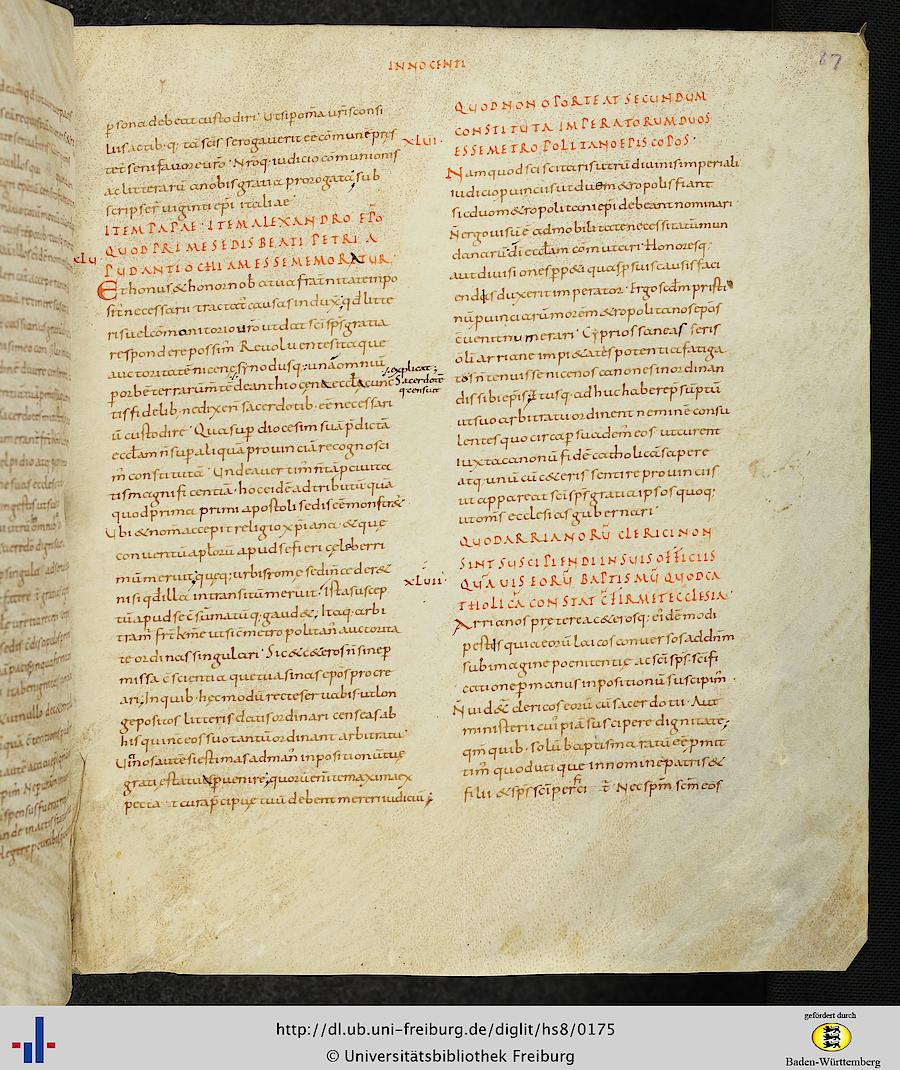 INNOCENTI
87
psona debeat custodiri · Ut ipoma uri consi
ac litterarū a nobis gratia prorogata sub
script ser uiginti epi italiae
ITEM PAPAE · ITEM ALEXANDRO EPO
XLV. QUOD PRIME SEDIS BEATI PETRI A
PUD ANTIOCHIAM ESSE MEMORATUR
risuelcommonitorio uro ut dat sci sps gratia
respondere possim Reuoluentes itaque
auctoritatē nicene synodus quā una omniū
explicat
sacerdotū
q censuit
ū custodire · Qua sup diocesim suā pdictā
ecclam n sup aliqua prouinciā recognosci
m constitutā · Unde auertim n tā p ciuita
tis magnificentiā hoc eidē adtributū quā
quod prima primi apostoli sedis eē monstret
Ubi & nom accepit religio xpiana · & que
conuentū aplorū apud se fieri celeberri
mū meruit que q; urbis rome sedi n cederet
nisi qd illa in transitū meruit · Ista suscep
tū apud se c sumatū q; gaud& · Itaq; arbi
tram frt kme ut sic metropolitan auctorita
te ordinas singulari · Sic & ceteros n sine p
missa c scientia que tua sinas epos procre
ari · In quib; hec modū recte seruabis ut lon
ge positos litteris datis ordinari censeas ab
his qui nc eos suo tantū ordinant arbitratu
Uicinos autē si estimas ad manū inpositionū tuę
gratię statuas puenire · quorū en te maxima ex
pectat cura p cipue tuū debent mereri iudiciū ;
QUOD NON OPORTEAT SECUNDUM
XLVI. CONSTITUTA IMPERATORUM DUOS
ESSE METROPOLITANO EPISCOPOS ·
Nam quod sciscitaris utrū diuinis imperiali
iudicio puinciis ut duę metropolis fiant
sic duo metropolitani epi debeant nominari
N ergo uisū ē ad mobilitatē necessitatū mun
danarū di ecclam commutari · Honoresq;
aut diuisiones ppeti quas p suis causis faci
endas duxerit imperator · Ergo scdm pristi
nū puinciarū morem metropolitanos epos
c uenit numerari · Cyprios sane as seris
oli arriane impietatis potentia fatiga
tos n tenuisse nicenos canones in ordinan
dis sibi epis
ut suo arbitratu ordinent neminē consu
lentes quo circa p suadem eos ut curent
iuxta canonū fidē catholicā sapere
atq; unū cū ceteris sentire prouinciis
ut appareat sci sps gratia ipsos quoq;
ut oms ecclesias gubernari ·
QUOD ARRIANORŪ CLERICI NON
SINT SUSCIPIENDI IN SUIS OFFICIIS
XLVII. QUĀUIS EORŪ BAPTISMŪ QUOD CA
THOLICĀ CONSTAT CFIRMET ECCLESIA ·
Arrianos pre terea ceterosq; eidē modi
pestes quia eorū laicos conuersos ad dnm
sub imagine poenitentię ac sci sps scifi
catione p manus inpositionū suscipim ·
N uidet clericos eorū cū sacerdotii · Aut
ministerii cui piā suscipere dignitate ;
qm quib; solū baptisma ratū eē pmit
tim quod utique in nomine patris &
filii & sps sci perfici t Nec spm scm eos
http://dl.ub.uni-freiburg.de/diglit/hs8/0175
© Universitätsbibliothek Freiburg
gefördert durch
Baden-Württemberg